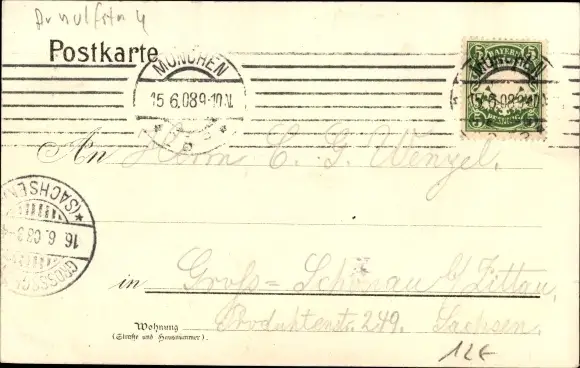 Arnulfstr. 4
Postkarte
MÜNCHEN
15 6.08 9-10.V.
5 BAYERN 5
MÜNCHEN
15 6.08 9-10
An Herrn C. G. Wenzel.
*(SACHSEN)
16. 6. 08. 3-4
GROSSSCH
in Groß-Schönau b/ Zittau,
Wohnung Produktenstr. 249. Sachsen.
(Straße und Hausnummer).
12€